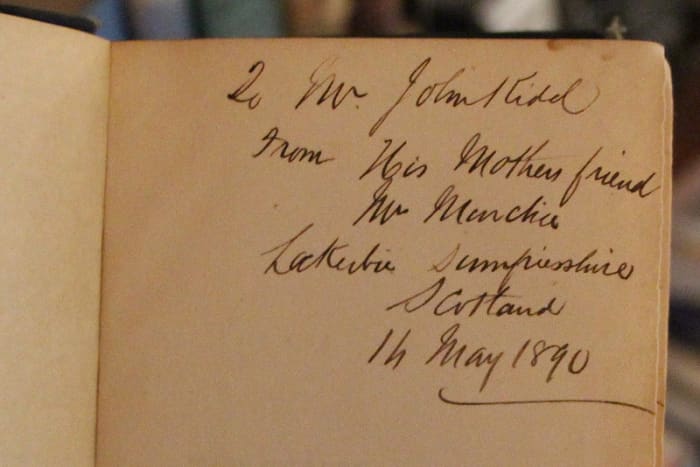 To Mr. John Kidd
From His Mothers friend
Mr Murchie
Lockerbie Dumfriesshire
Scotland
14 May 1890